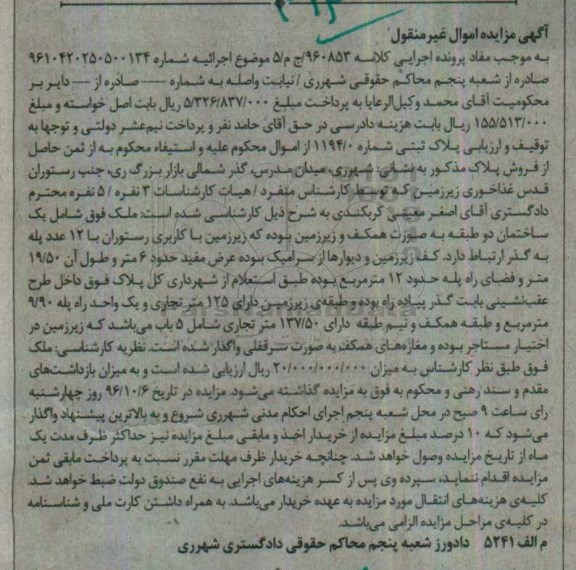 آگهی مزایده اموال غیرمنقول
به موجب مفاد پرونده اجرایی کلاسه ۹۶۰۸۵۳/ج م/۵ موضوع اجرائیه شماره ۹۶۱۰۴۲۰۲۵۰۵۰۰۱۳۴
صادره از شعبه پنجم محاکم حقوقی شهرری / نیابت واصله به شماره —— صادره از —— دایر بر
محکومیت آقای محمد وکیل‌الرعایا به پرداخت مبلغ ۵/۳۲۶/۸۳۷/۰۰۰ ریال بابت اصل خواسته و مبلغ
۱۵۵/۵۱۳/۰۰۰ ریال بابت هزینه دادرسی در حق آقای حامد نفر و پرداخت نیم‌عشر دولتی و توجها به
توقیف و ارزیابی پلاک ثبتی شماره ۱۱۹۴/۰ از اموال محکوم علیه و استیفاء محکوم به از ثمن حاصل
از فروش پلاک مذکور به نشانی: شهرری، میدان مدرس، گذر شمالی بازار بزرگ ری، جنب رستوران
قدس غذاخوری زیرزمین که توسط کارشناس منفرد / هیات کارشناسات ۳ نفره / ۵ نفره محترم
دادگستری آقای اصغر معینی گریکندی به شرح ذیل کارشناسی شده است: ملک فوق شامل یک
ساختمان دو طبقه به صورت همکف و زیرزمین بوده که زیرزمین با کاربری رستوران با ۱۲ عدد پله
به گذر ارتباط دارد. کف زیرزمین و دیوارها از سرامیک بوده عرض مفید حدود ۶ متر و طول آن ۱۹/۵۰
متر و فضای راه پله حدود ۱۲ مترمربع بوده طبق استعلام از شهرداری کل پلاک فوق داخل طرح
عقب‌نشینی بابت گذر پیاده راه بوده و طبقه‌ی زیرزمین دارای ۱۲۵ متر تجاری و یک واحد راه پله ۹/۹۰
مترمربع و طبقه همکف و نیم طبقه دارای ۱۳۷/۵۰ متر تجاری شامل ۵ باب می‌باشد که زیرزمین در
اختیار مستاجر بوده و مغازه‌های همکف به صورت سرقفلی واگذار شده است. نظریه کارشناسی: ملک
فوق طبق نظر کارشناس به میزان ۲۰/۰۰۰/۰۰۰/۰۰۰ ریال ارزیابی شده است و به میزان بازداشت‌های
مقدم و سند رهنی و محکوم به فوق به مزایده گذاشته می‌شود. مزایده در تاریخ ۹۶/۱۰/۶ روز چهارشنبه
رای ساعت ۹ صبح در محل شعبه پنجم اجرای احکام مدنی شهرری شروع و به بالاترین پیشنهاد واگذار
می‌شود که ۱۰ درصد مبلغ مزایده از خریدار اخذ و مابقی مبلغ مزایده نیز حداکثر ظرف مدت یک
ماه از تاریخ مزایده وصول خواهد شد. چنانچه خریدار ظرف مهلت مقرر نسبت به پرداخت مابقی ثمن
مزایده اقدام ننماید، سپرده وی پس از کسر هزینه‌های اجرایی به نفع صندوق دولت ضبط خواهد شد.
کلیه‌ی هزینه‌های انتقال مورد مزایده به عهده خریدار می‌باشد. به همراه داشتن کارت ملی و شناسنامه
در کلیه‌ی مراحل مزایده الزامی می‌باشد.
م الف ۵۲۴۱ دادورز شعبه پنجم محاکم حقوقی دادگستری شهرری